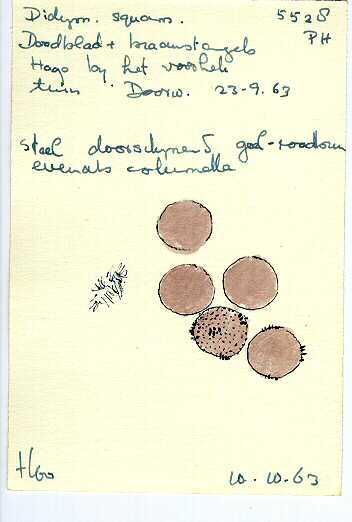 Didym. squam. 5528
Doodblad + braamstengels PH
Hago by het voorhek
tuin Doorw. 23-9.63
Steel doorschynend, geel-roodbruin
evenals columella
10.10.63